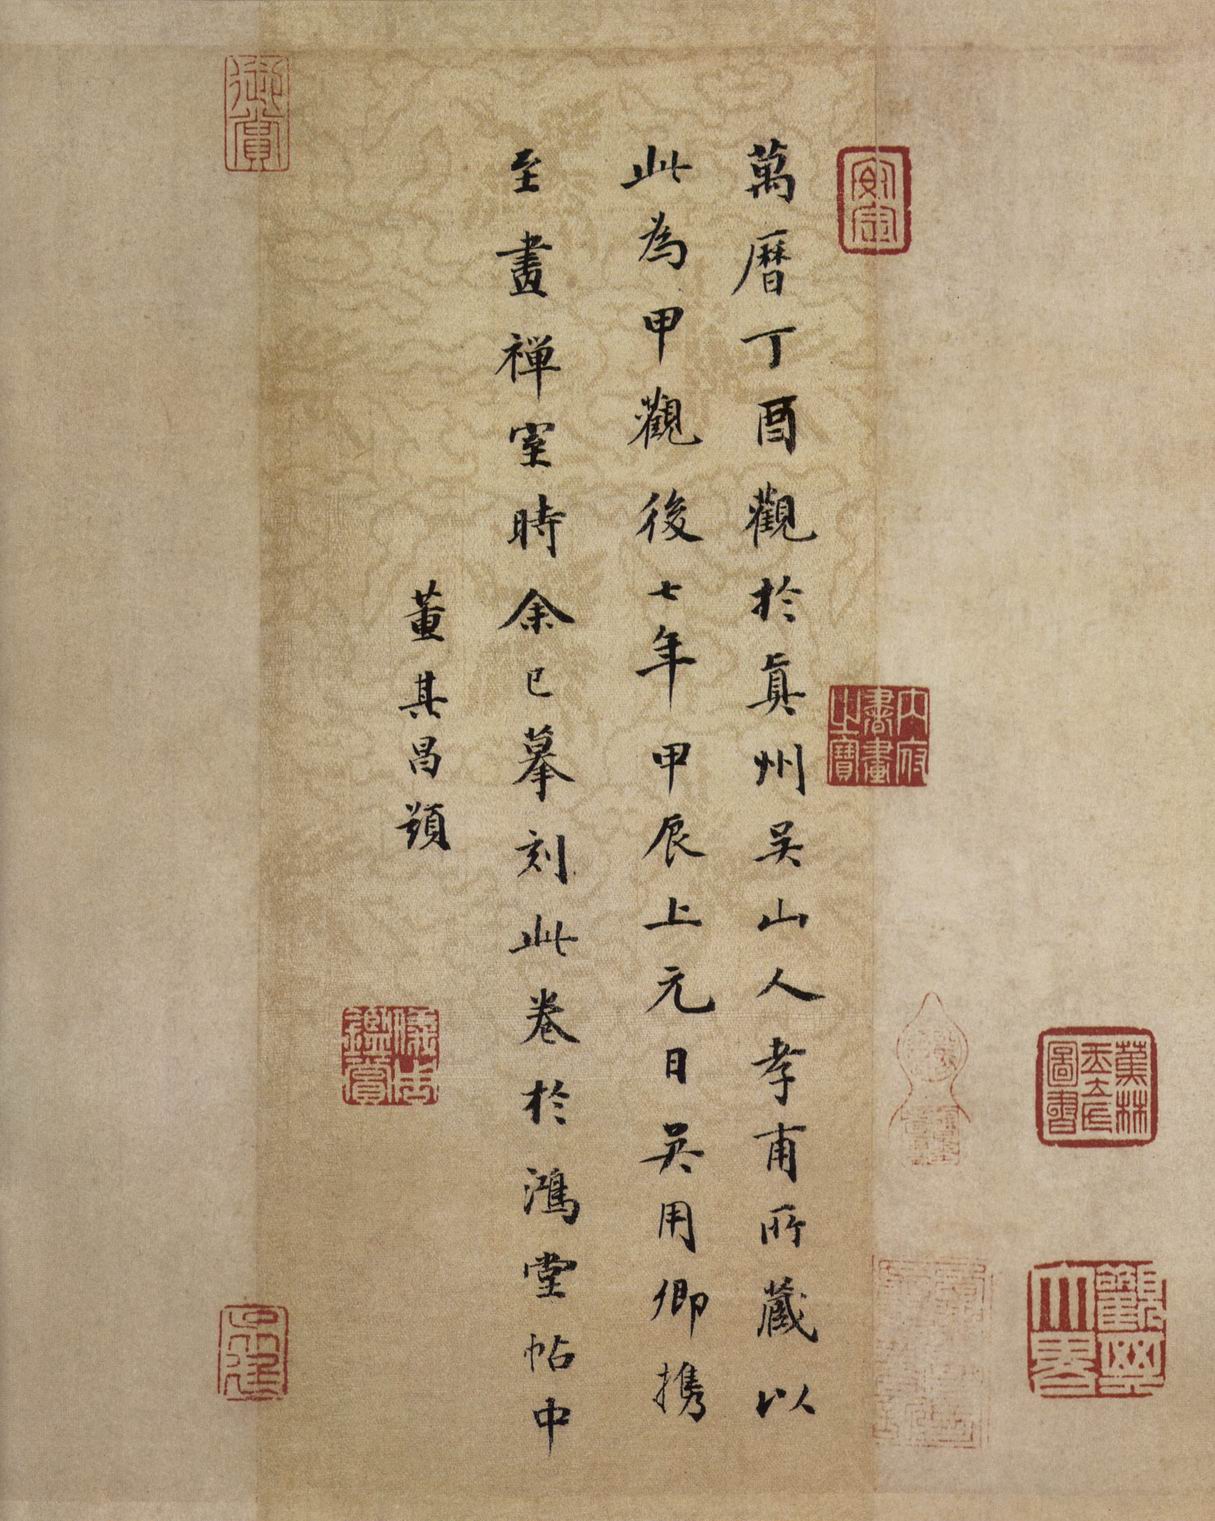 萬曆丁酉觀於真州吳山人孝甫所藏以
此為甲觀後七年甲辰上元日吳用卿攜
至畫禪室時余已摹刻此卷於鴻堂帖中
董其昌題
御賞
內府書畫之寶
蕉林玉立氏圖書
觀其大略